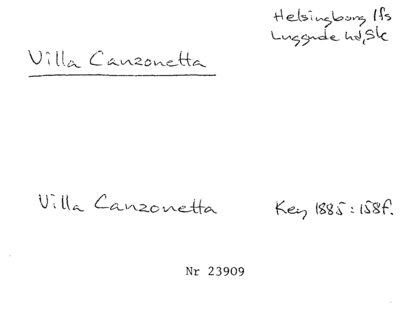 Helsingborg lfs
Luggude hd, Sk
Villa Canzonetta
Villa Canzonetta Key 1885 : 158f.
Nr 23909